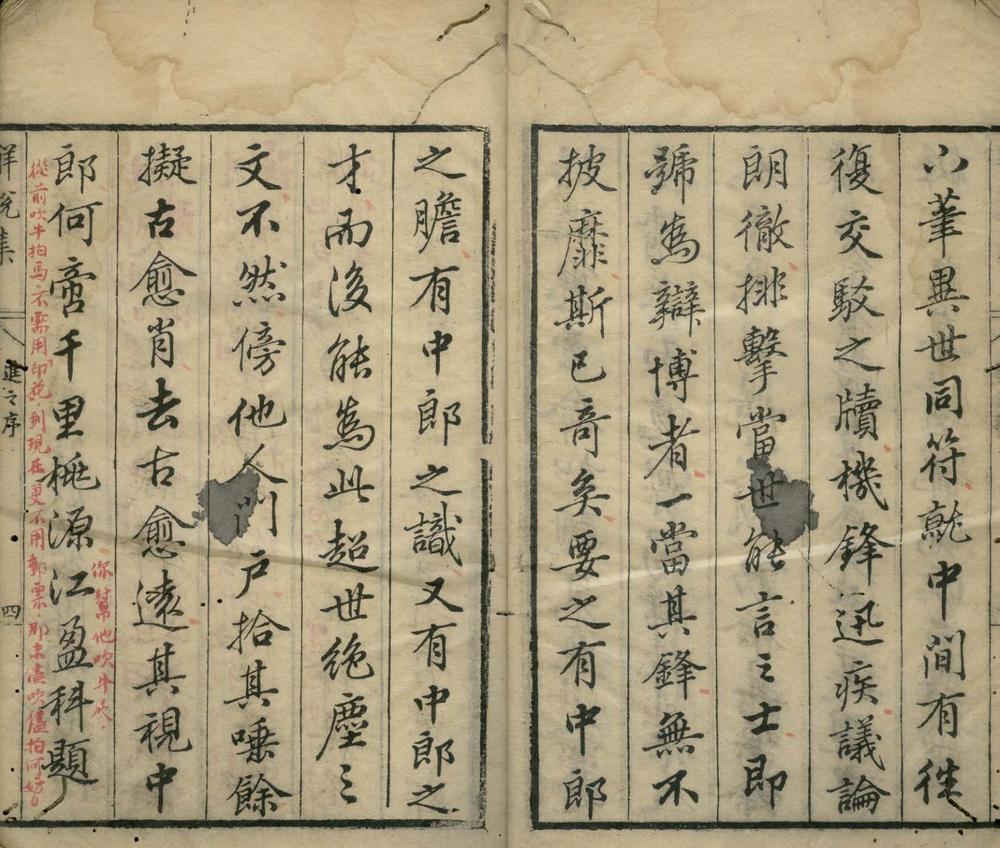 筆異世同符就中間有往
復交駁之牘機鋒迅疾議論
朗徹排擊當世能言之士即
號為辯博者一當其鋒無不
披靡斯已奇矣要之有中郎
之膽有中郎之識又有中郎之
才而後能為此超世絕塵之
文不然傍他人門戶拾其唾餘
擬古愈肖去古愈遠其視中
郎何啻千里桃源江盈科題
你幫他吹牛屄
從前吹牛拍馬不需用印花到現在更不用郵票那末儘吹儘拍何妨
進之序
四